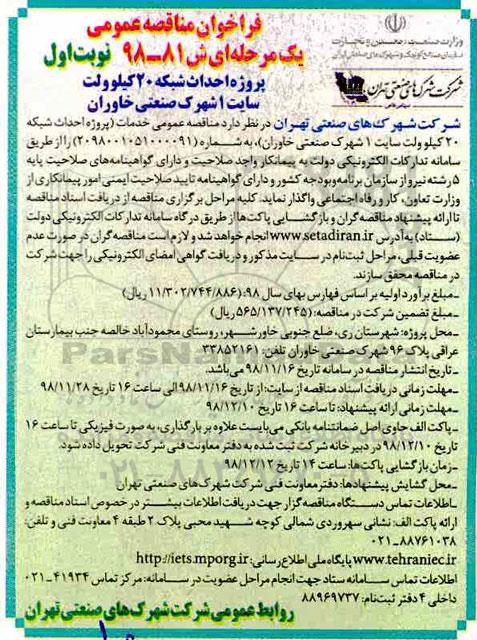 فراخوان مناقصه عمومی
یک مرحله‌ای ش ۸۱-۹۸ نوبت اول
پروژه احداث شبکه ۲۰ کیلو ولت
سایت ۱ شهرک صنعتی خاوران
وزارت صنعت، معدن و تجارت
سازمان صنایع کوچک و شهرکهای صنعتی ایران
شرکت شهرکهای صنعتی تهران
شرکت شهرک‌های صنعتی تهران در نظر دارد مناقصه عمومی خدمات (پروژه احداث شبکه
۲۰ کیلو ولت سایت ۱ شهرک صنعتی خاوران)، به شماره (۲۰۹۸۰۰۱۰۵۱۰۰۰۰۹۱) را از طریق
سامانه تدارکات الکترونیکی دولت به پیمانکار واجد صلاحیت و دارای گواهینامه‌های صلاحیت پایه
۵ رشته نیرو از سازمان برنامه‌وبودجه کشور و دارای گواهینامه تایید صلاحیت ایمنی امور پیمانکاری از
وزارت تعاون، کار و رفاه اجتماعی واگذار نماید. کلیه مراحل برگزاری مناقصه از دریافت اسناد مناقصه
تا ارائه پیشنهاد مناقصه گران و بازگشایی پاکت‌ها از طریق درگاه سامانه تدارکات الکترونیکی دولت
(ستاد) به آدرس www.setadiran.ir انجام خواهد شد و لازم است مناقصه گران در صورت عدم
عضویت قبلی، مراحل ثبت‌نام در سایت مذکور و دریافت گواهی امضای الکترونیکی را جهت شرکت
در مناقصه محقق سازند.
-مبلغ برآورد اولیه بر اساس فهارس بهای سال ۹۸: (۱۱/۳۰۲/۷۴۴/۸۸۶ ریال)
-مبلغ تضمین شرکت در مناقصه: (۵۶۵/۱۳۷/۲۴۵ ریال)
-محل پروژه: شهرستان ری، ضلع جنوبی خاورشهر، روستای محمودآباد خالصه جنب بیمارستان
عراقی پلاک ۹۶ شهرک صنعتی خاوران تلفن: ۳۳۸۵۲۱۶۱
-تاریخ انتشار مناقصه در سامانه تاریخ ۹۸/۱۱/۱۶ می‌باشد.
-مهلت زمانی دریافت اسناد مناقصه از سایت: از تاریخ ۹۸/۱۱/۱۶ الی ساعت ۱۶ تاریخ ۹۸/۱۱/۲۸
-مهلت زمانی ارائه پیشنهاد: تا ساعت ۱۶ تاریخ ۹۸/۱۲/۱۰
-پاکت الف حاوی اصل ضمانتنامه بانکی می‌بایست علاوه بر بارگذاری، به صورت فیزیکی تا ساعت ۱۶
تاریخ ۹۸/۱۲/۱۰ در دبیرخانه شرکت ثبت شده به دفتر معاونت فنی شرکت تحویل داده شود.
-زمان بازگشایی پاکت‌ها: ساعت ۱۴ تاریخ ۹۸/۱۲/۱۲
-محل گشایش پیشنهادها: دفتر معاونت فنی شرکت شهرک‌های صنعتی تهران
-اطلاعات تماس دستگاه مناقصه گزار جهت دریافت اطلاعات بیشتر در خصوص اسناد مناقصه و
ارائه پاکت الف: نشانی سهروردی شمالی کوچه شهید محبی پلاک ۲ طبقه ۴ معاونت فنی و تلفن:
۰۲۱-۸۸۷۶۱۰۳۸
www.tehraniec.ir پایگاه ملی اطلاع رسانی: http://iets.mporg.ir
اطلاعات تماس سامانه ستاد جهت انجام مراحل عضویت در سامانه: مرکز تماس ۴۱۹۳۴-۰۲۱
داخلی ۴ دفتر ثبت‌نام: ۸۸۹۶۹۷۳۷
روابط عمومی شرکت شهرک‌های صنعتی تهران